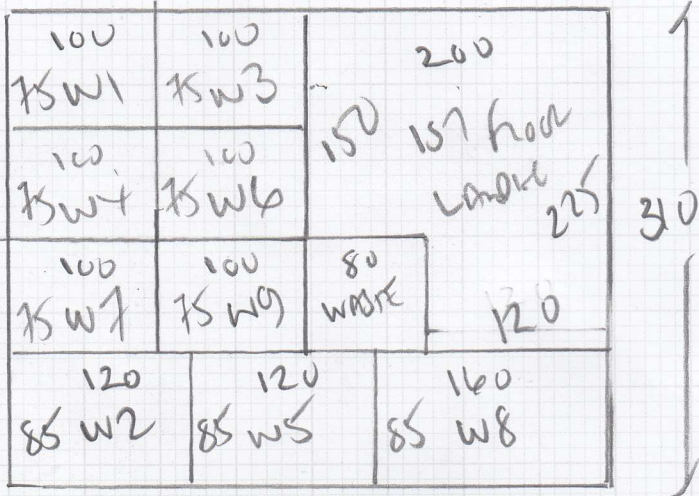 100
75 W1
100
75 W3
200
150
1st floor
Landing
225
310
100
75 W4
100
75 W6
100
75 W7
100
75 W9
80
WASTE
120
120
85 W2
120
85 W5
160
85 W8